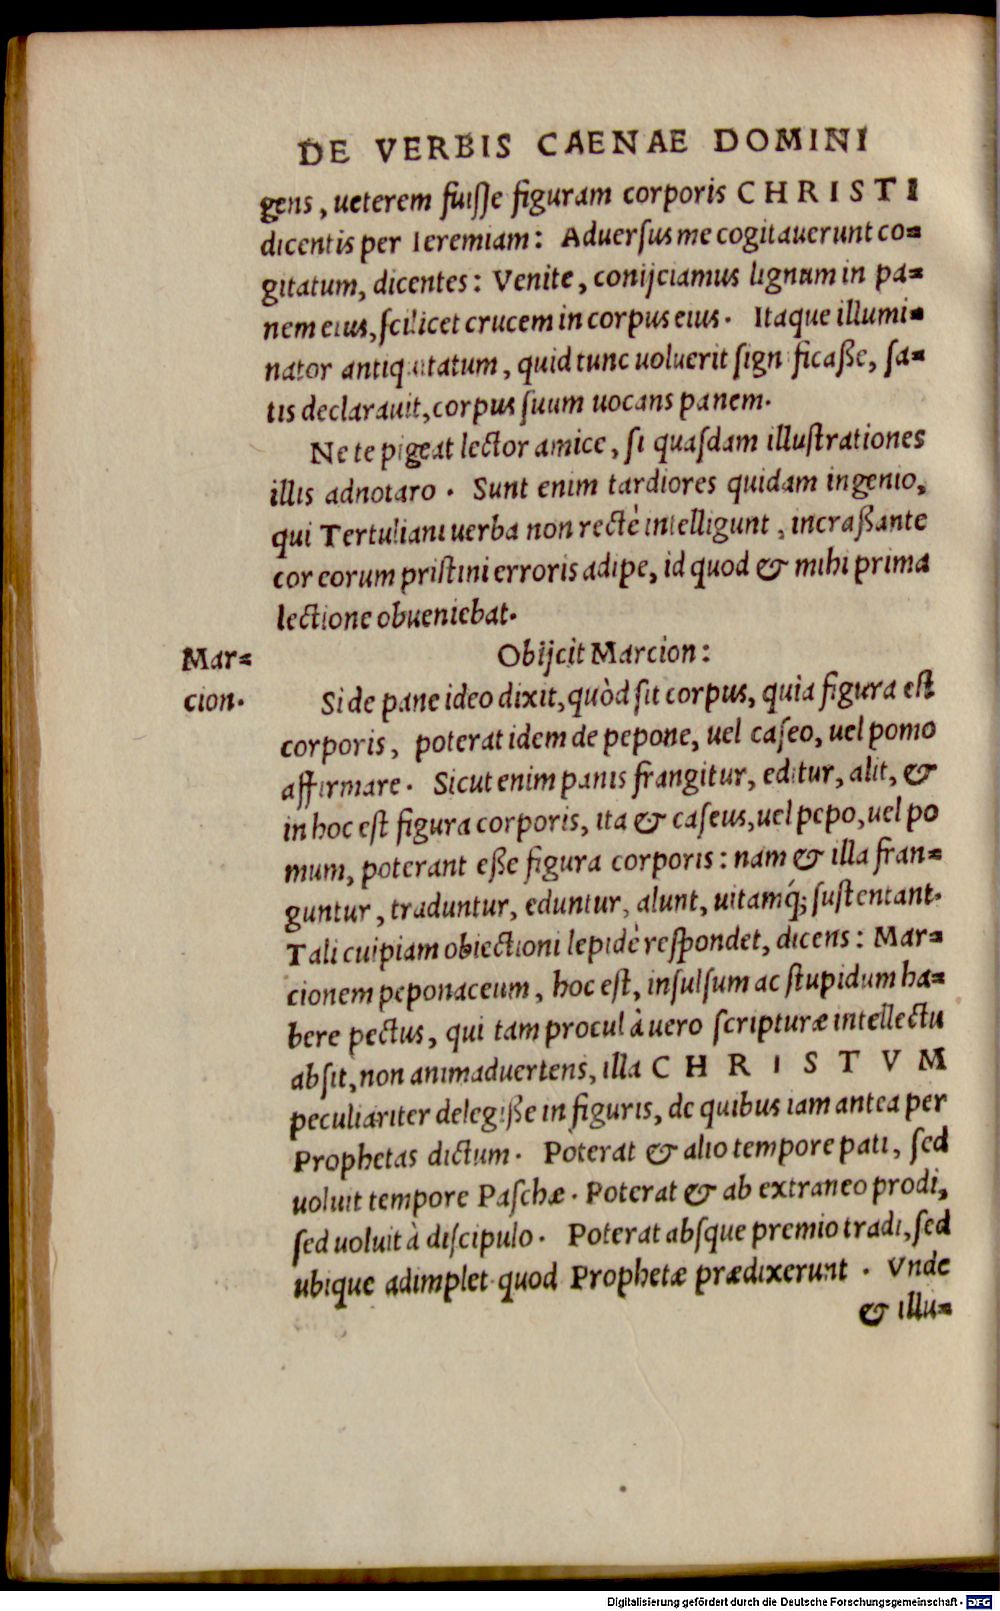 DE VERBIS CAENAE DOMINI
gens, ueterem fuisse figuram corporis CHRISTI
dicentis per Ieremiam: Aduersus me cogitauerunt co=
gitatum, dicentes: Venite, conijciamus lignum in pa=
nem eius, scilicet crucem in corpus eius. Itaque illumi=
nator antiquitatum, quid tunc uoluerit significaße, sa=
tis declarauit, corpus suum uocans panem.
Ne te pigeat lector amice, si quasdam illustrationes
illis adnotaro. Sunt enim tardiores quidam ingenio,
qui Tertuliani uerba non rectè intelligunt, incraßante
cor eorum pristini erroris adipe, id quod & mihi prima
lectione obueniebat.
Obijcit Marcion:
Mar=
cion.
Si de pane ideo dixit, quòd sit corpus, quia figura est
corporis, poterat idem de pepone, uel caseo, uel pomo
affirmare. Sicut enim panis frangitur, editur, alit, &
in hoc est figura corporis, ita & caseus, uel pepo, uel po
mum, poterant eße figura corporis: nam & illa fran=
guntur, traduntur, eduntur, alunt, uitamq́; sustentant.
Tali cuipiam obiectioni lepidè respondet, dicens: Mar=
cionem peponaceum, hoc est, insulsum ac stupidum ha=
bere pectus, qui tam procul à uero scripturæ intellectu
absit, non animaduertens, illa CHRISTVM
peculiariter delegiße in figuris, de quibus iam antea per
Prophetas dictum. Poterat & alio tempore pati, sed
uoluit tempore Paschæ. Poterat & ab extraneo prodi,
sed uoluit à discipulo. Poterat absque premio tradi, sed
ubique adimplet quod Prophetæ prædixerunt. Vnde
& illu=
Digitalisierung gefördert durch die Deutsche Forschungsgemeinschaft - DFG